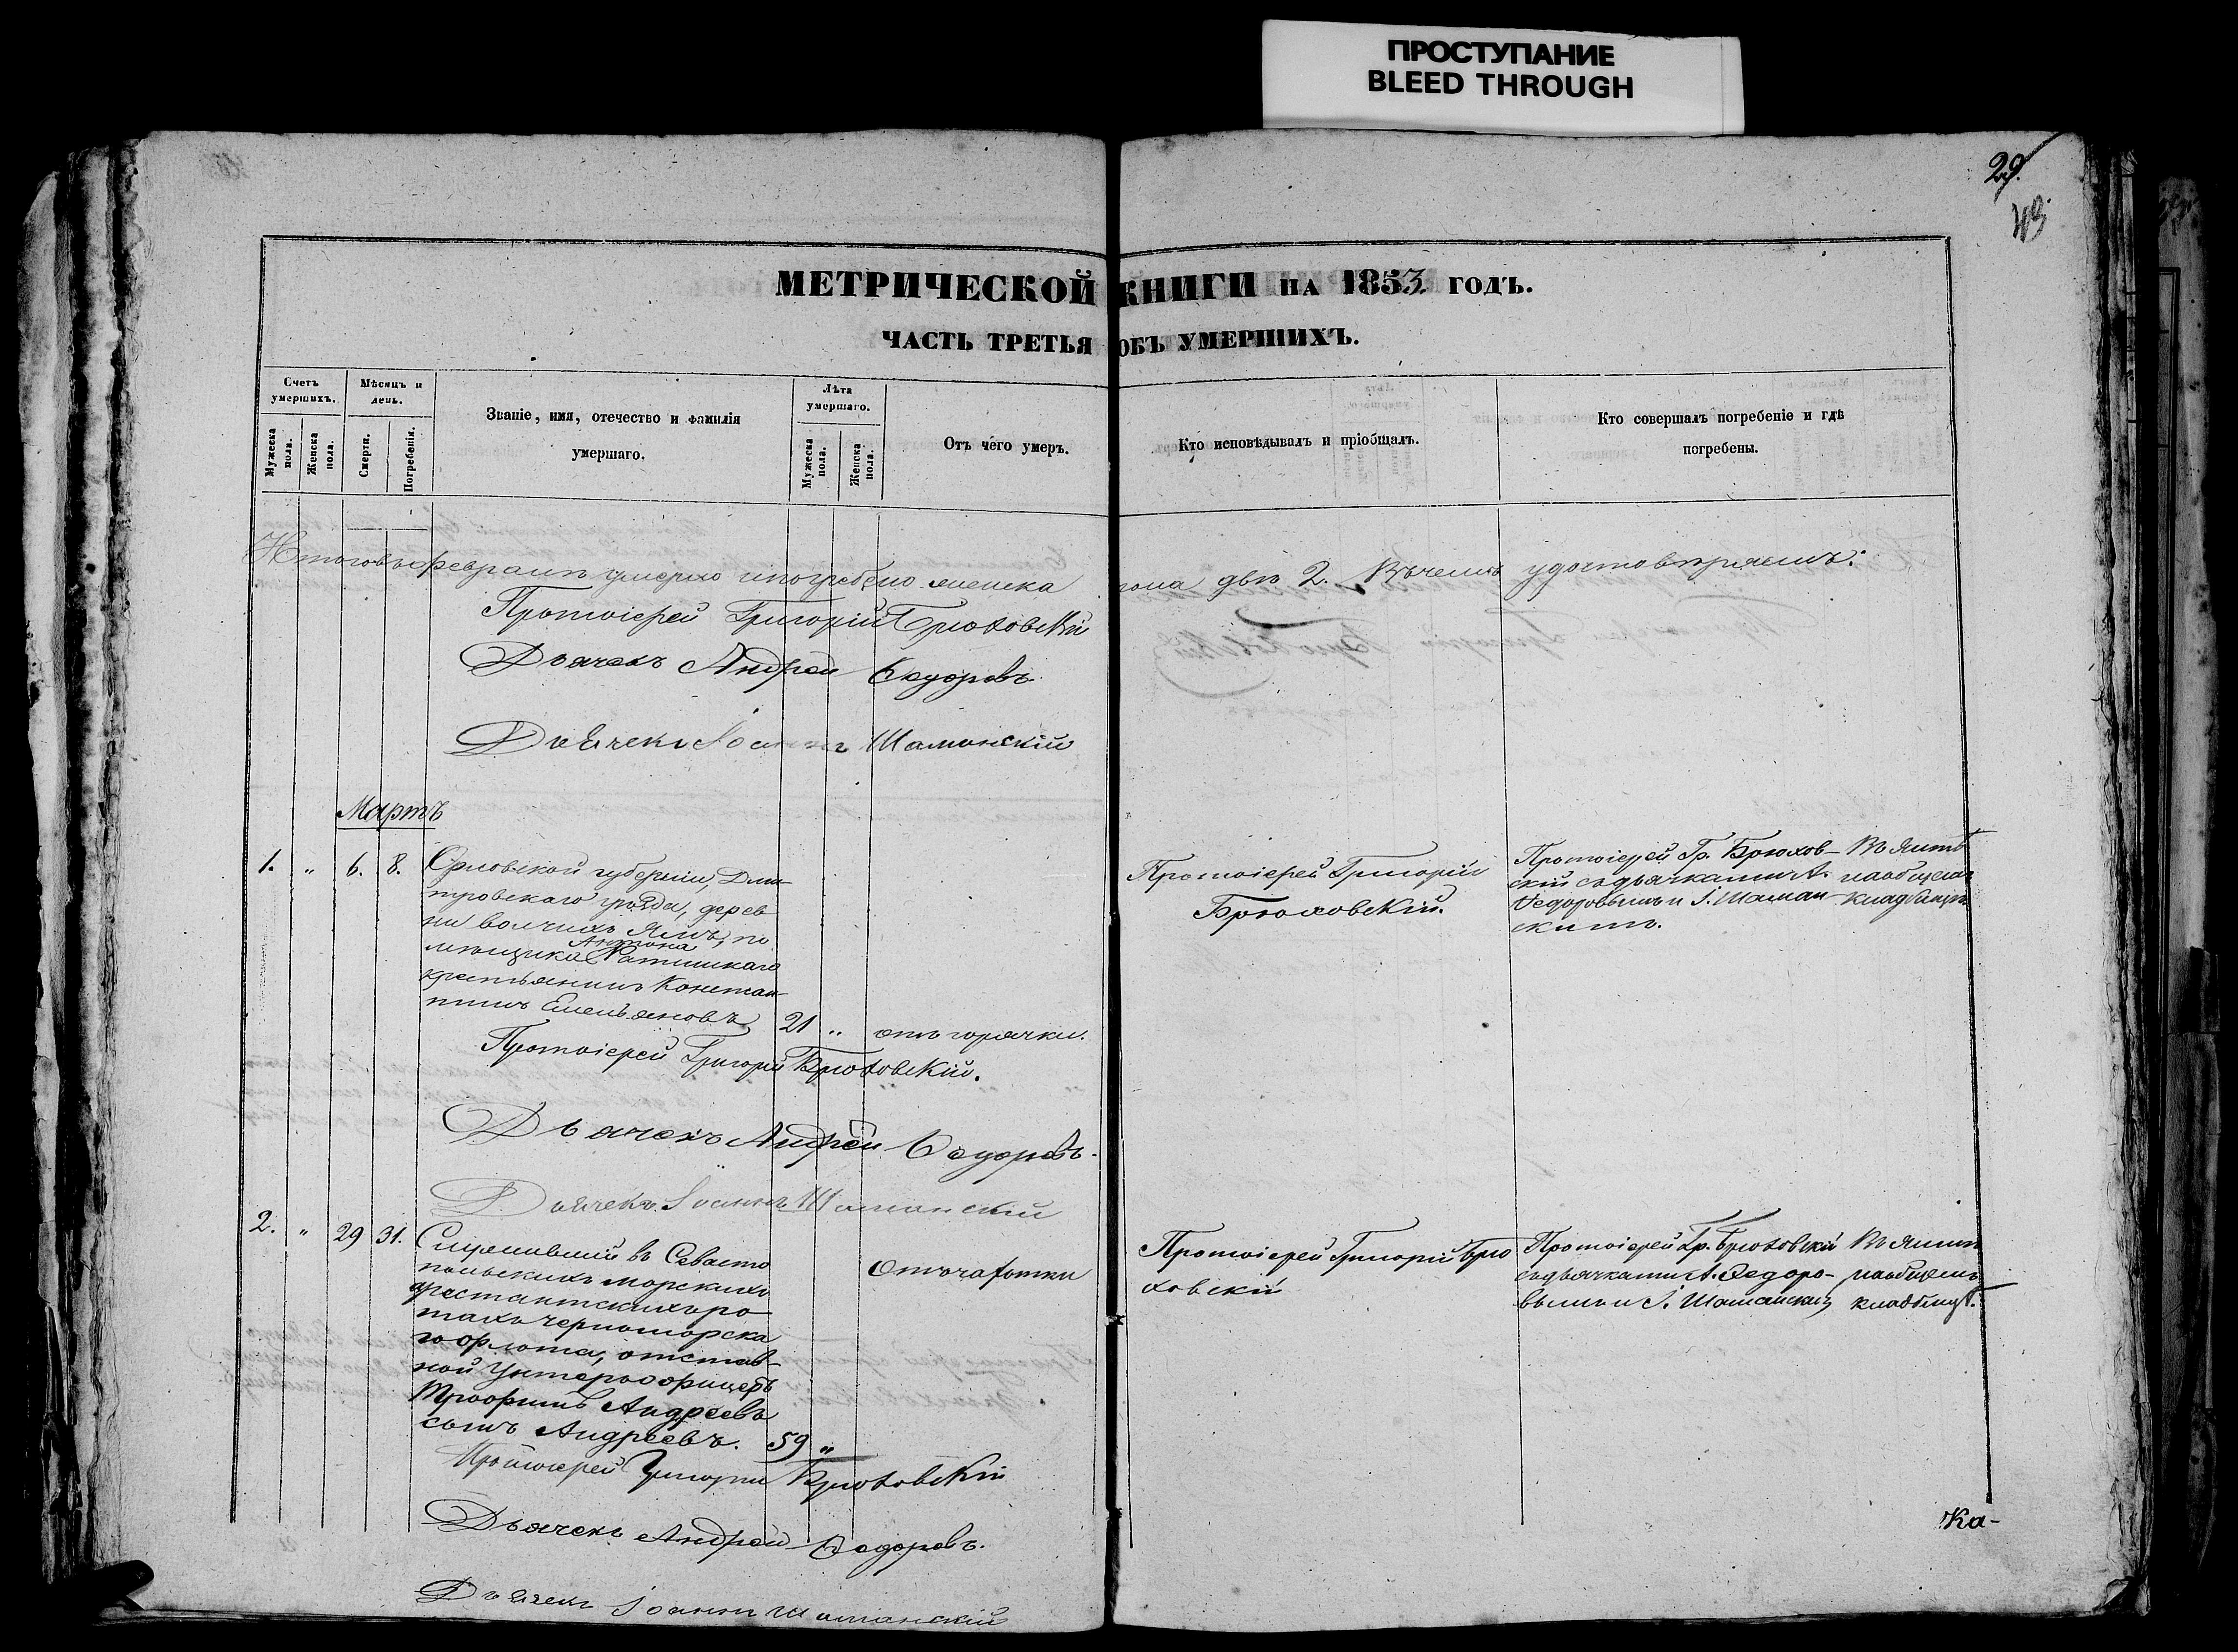 ПРОСТУПАНИЕ
BLEED THROUGH
29.
МЕТРИЧЕСКОЙ КНИГИ НА 1853 ГОДЪ.
ЧАСТЬ ТРЕТЬЯ ОБЪ УМЕРШИХЪ.
Счетъ умершихъ.
Мужеска пола.
Женска пола.
Мѣсяцъ и день.
Смерти.
Погребенія.
Званіе, имя, отечество и фамилія
умершаго.
Лѣта умершаго.
Мужеска пола.
Женска пола.
Отъ чего умеръ.
Кто исповѣдывалъ и пріобщалъ.
Кто совершалъ погребеніе и гдѣ
погребены.
Итого въ февралѣ умерло и погребено женска пола двѣ 2. Въ чемъ удостовѣряемъ:
Протоіерей Григорій Брюховскій
Дьячекъ Андрей Ѳедоровъ
Дьячекъ Іоаннъ Шаманскій
Мартъ
1. " 6. 8. Орловской губерніи, Дми-
тровскаго уѣзда, дерев
ни Волчихъ Ямъ, по
Антона
мѣщика
крестьянинъ Констан-
тинъ Емельяновъ 21 " отъ горячки.
Протоіерей Григорій
Брюховскій.
Протоіерей Гр. Брюхов-
скій съ дьячками А.
Ѳедоровымъ и І. Шаман
скимъ.
Въ Ялтѣ
на общемъ
кладбищѣ
Протоіерей Григорій Брюховскій.
Дьячекъ Андрей Ѳедоровъ.
Дьячекъ Іоаннъ Шаманскій
2. " 29 31. Служившій въ Севасто
польскихъ морскихъ
арестантскихъ ро
тахъ черноморска
го флота, отстав-
ной Унтеръ офицеръ
Трофимъ Андреевъ
сынъ Андреевъ. 59 "
Отъ чахотки
Протоіерей Григорій Брю
ховскій
Протоіерей Гр. Брюховскій
съ дьячками А. Ѳедоро-
вымъ и І. Шаманскимъ
Въ Ялтѣ
на общемъ
кладбищѣ.
Протоіерей Григорій Брюховскій
Дьячекъ Андрей Ѳедоровъ.
Дьячекъ Іоаннъ Шаманскій
Ка-